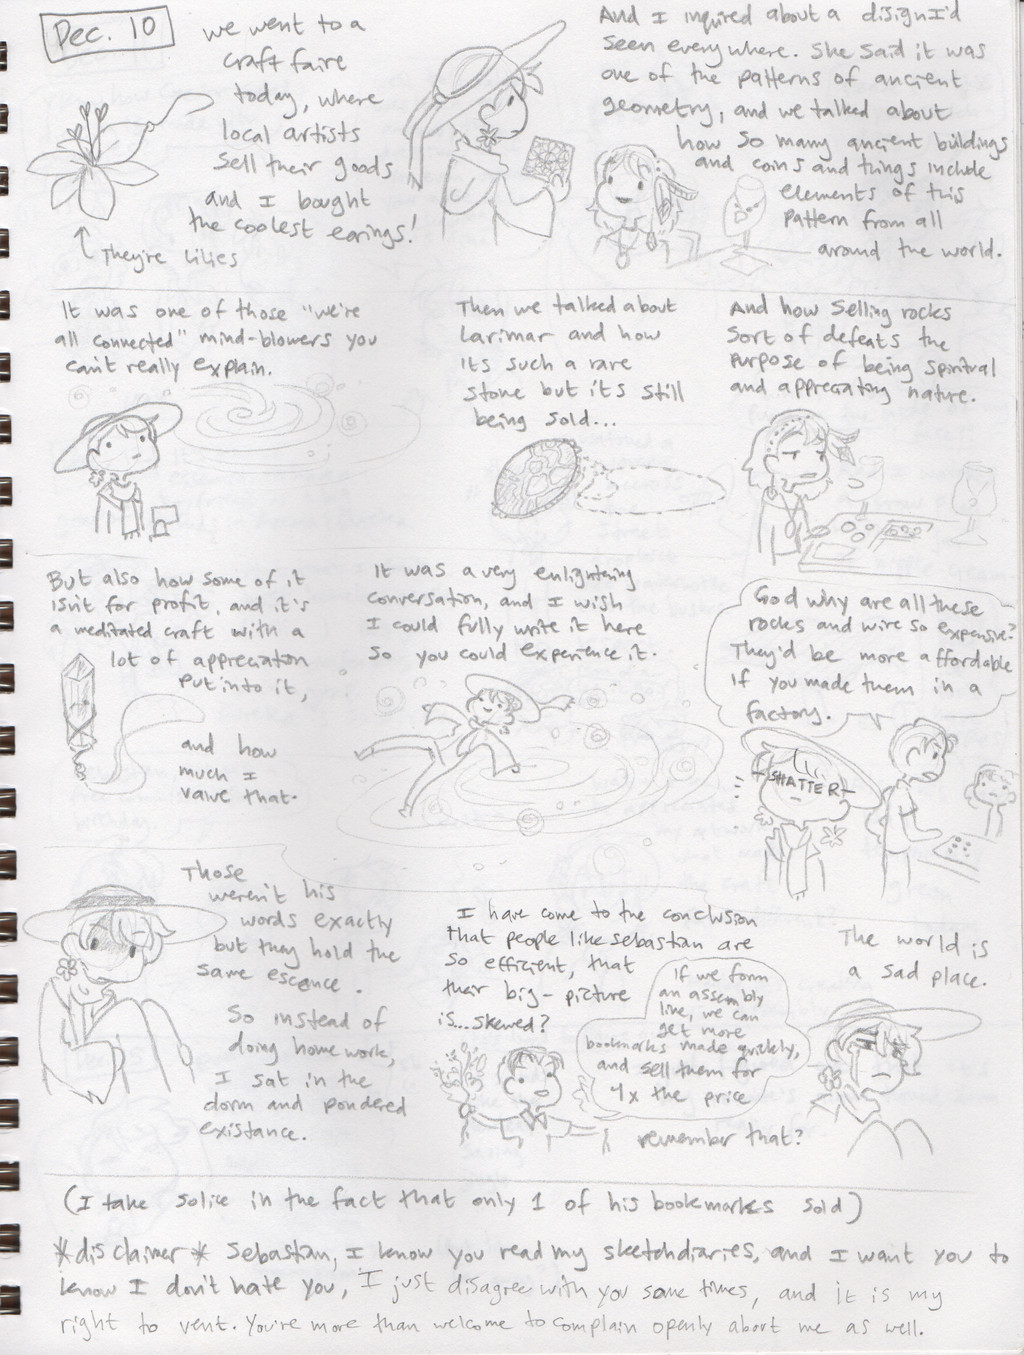 Dec. 10
we went to a
craft faire
today, where
local artists
sell their goods
and I bought
the coolest earings!
They're Lilies
And I inquired about a disign I'd
seen everywhere. She said it was
one of the patterns of ancient
geometry, and we talked about
how so many ancient buildings
and coins and things include
elements of this
pattern from all
around the world.
It was one of those "we're
all connected" mind-blowers you
can't really explain.
Then we talked about
Larimar and how
its such a rare
stone but it's still
being sold...
And how selling rocks
sort of defeats the
purpose of being spiritual
and appreciating nature.
But also how some of it
isn't for profit, and it's
a meditated craft with a
lot of appreciation
put into it,
and how
much I
value that.
It was a very enlightening
conversation, and I wish
I could fully write it here
so you could experience it.
God why are all these
rocks and wire so expensive?
They'd be more affordable
if you made them in a
factory.
-SHATTER-
Those
weren't his
words exactly
but they hold the
same escence.
So instead of
doing homework,
I sat in the
dorm and pondered
existance.
I have come to the conclusion
that people like Sebastian are
so efficient, that
their big-picture
is...skewed?
If we form
an assembly
line, we can
get more
bookmarks made quickly,
and sell them for
4x the price
remember that?
The world is
a sad place.
(I take solice in the fact that only 1 of his bookmarks sold)
*disclaimer* Sebastian, I know you read my sketchdiaries, and I want you to
know I don't hate you, I just disagree with you some times, and it is my
right to vent. You're more than welcome to complain openly about me as well.